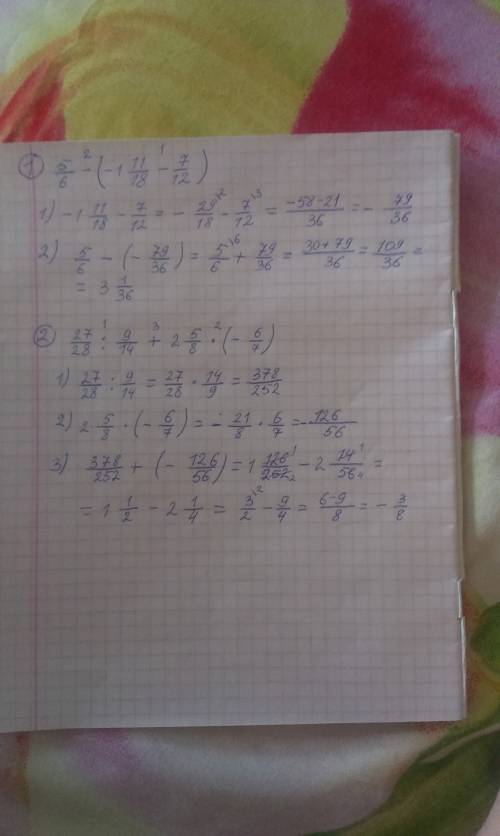 1 5/6 -² (-1 11/18 -¹ 7/12)
1) -1 11/18 - 7/12 = - 29\2/18 - 7\3/12 = -58-21/36 = - 79/36
2) 5/6 - (- 79/36) = 5\6/6 + 79/36 = 30+79/36 = 109/36 =
= 3 1/36
2 27/28 :¹ 9/14 +³ 2 5/8 ·² (- 6/7)
1) 27/28 : 9/14 = 27/28 · 14/9 = 378/252
2) 2 5/8 · (- 6/7) = - 21/8 · 6/7 = - 126/56
3) 378/252 + (- 126/56) = 1 126¹/252₂ - 2 14¹/56₄ =
= 1 1/2 - 2 1/4 = 3\2/2 - 9/4 = 6-9/8 = - 3/8